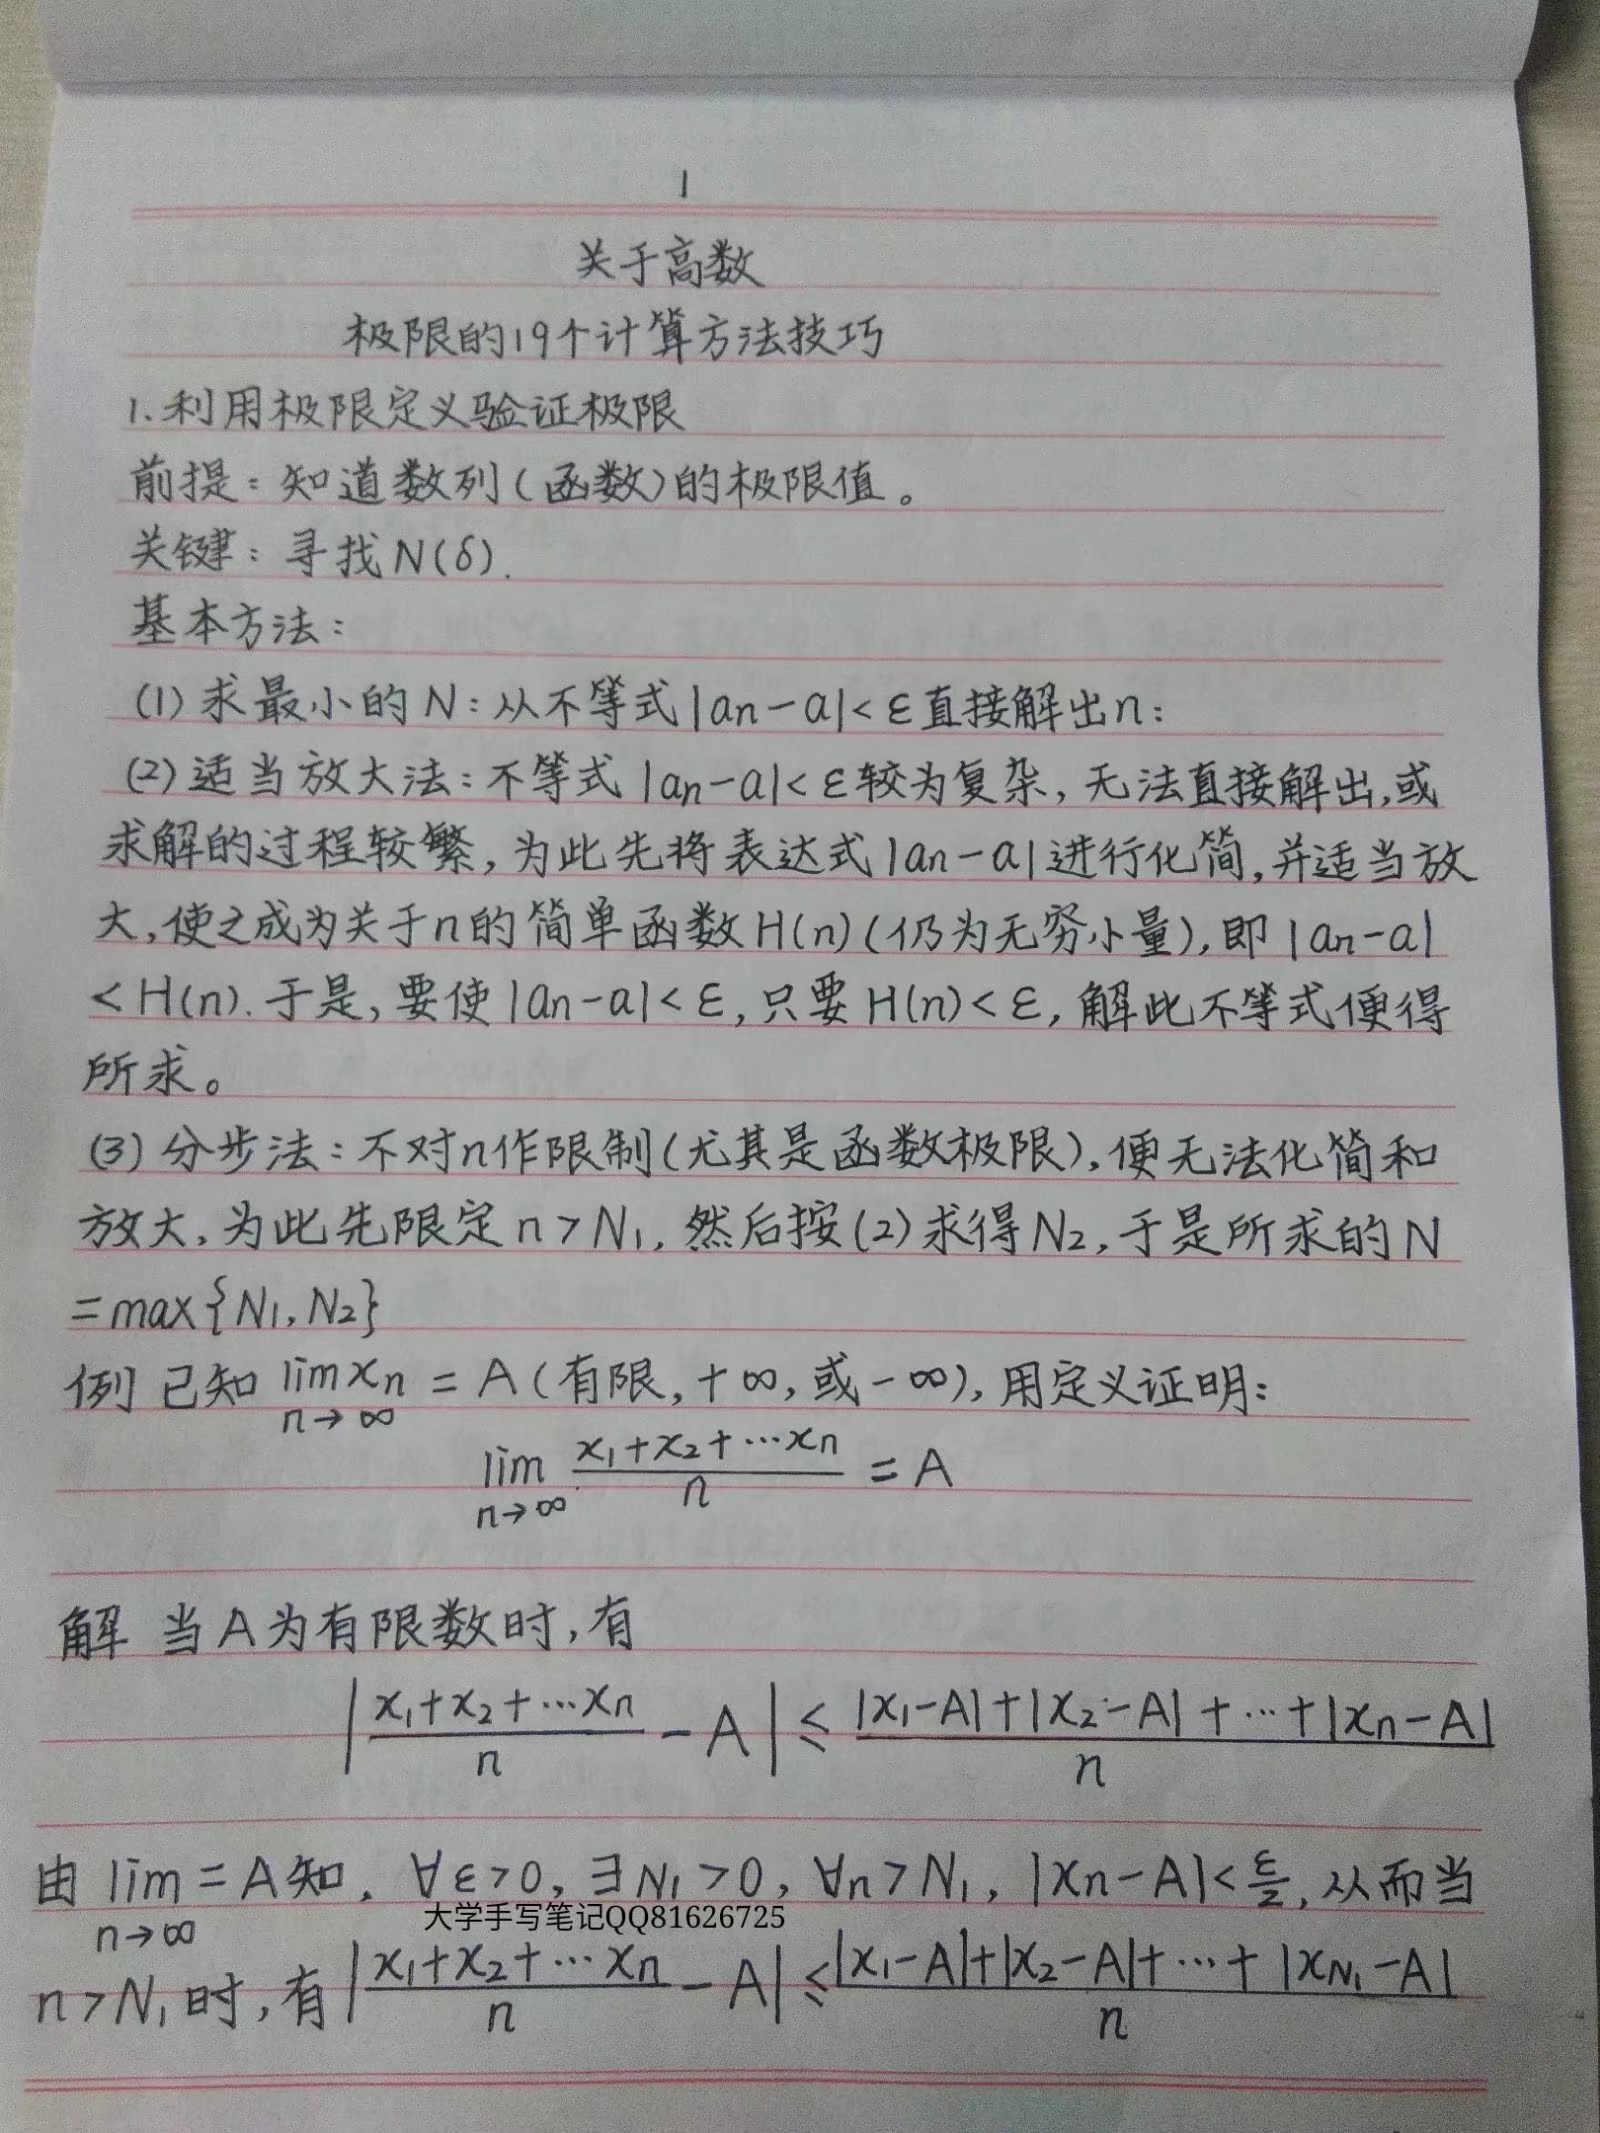 1
关于高数
极限的19个计算方法技巧
1.利用极限定义验证极限
前提：知道数列(函数)的极限值。
关键：寻找N(δ).
基本方法：
(1)求最小的N：从不等式|an-a|<ε直接解出n：
(2)适当放大法：不等式|an-a|<ε较为复杂，无法直接解出,或
求解的过程较繁，为此先将表达式|an-a|进行化简,并适当放
大,使之成为关于n的简单函数H(n)(仍为无穷小量),即|an-a|
<H(n).于是,要使|an-a|<ε,只要H(n)<ε,解此不等式便得
所求。
(3)分步法：不对n作限制(尤其是函数极限),便无法化简和
放大,为此先限定n>N1,然后按(2)求得N2,于是所求的N
=max{N1,N2}
例 已知 lim xn = A(有限,+∞,或-∞),用定义证明：
n→∞
lim (x1+x2+…xn)/n = A
n→∞
解 当A为有限数时,有
|(x1+x2+…xn)/n - A| ≤ (|x1-A|+|x2-A|+…+|xn-A|)/n
由 lim = A知, ∀ε>0,∃N1>0,∀n>N1,|xn-A|<ε/2,从而当
n→∞
大学手写笔记QQ81626725
n>N1时,有|(x1+x2+…xn)/n - A| ≤ (|x1-A|+|x2-A|+…+|xN1-A|)/n